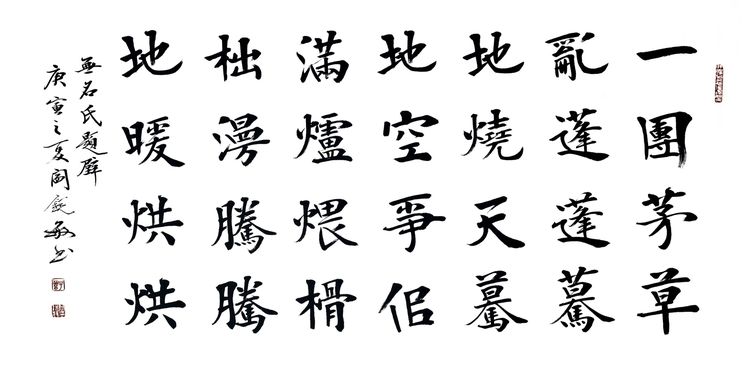 一團茅草
亂蓬蓬驀
地燒天驀
地空爭佀
滿爐煨榾
柮漫騰騰
地暖烘烘
無名氏題壁
庚寅之夏閻銳敏书